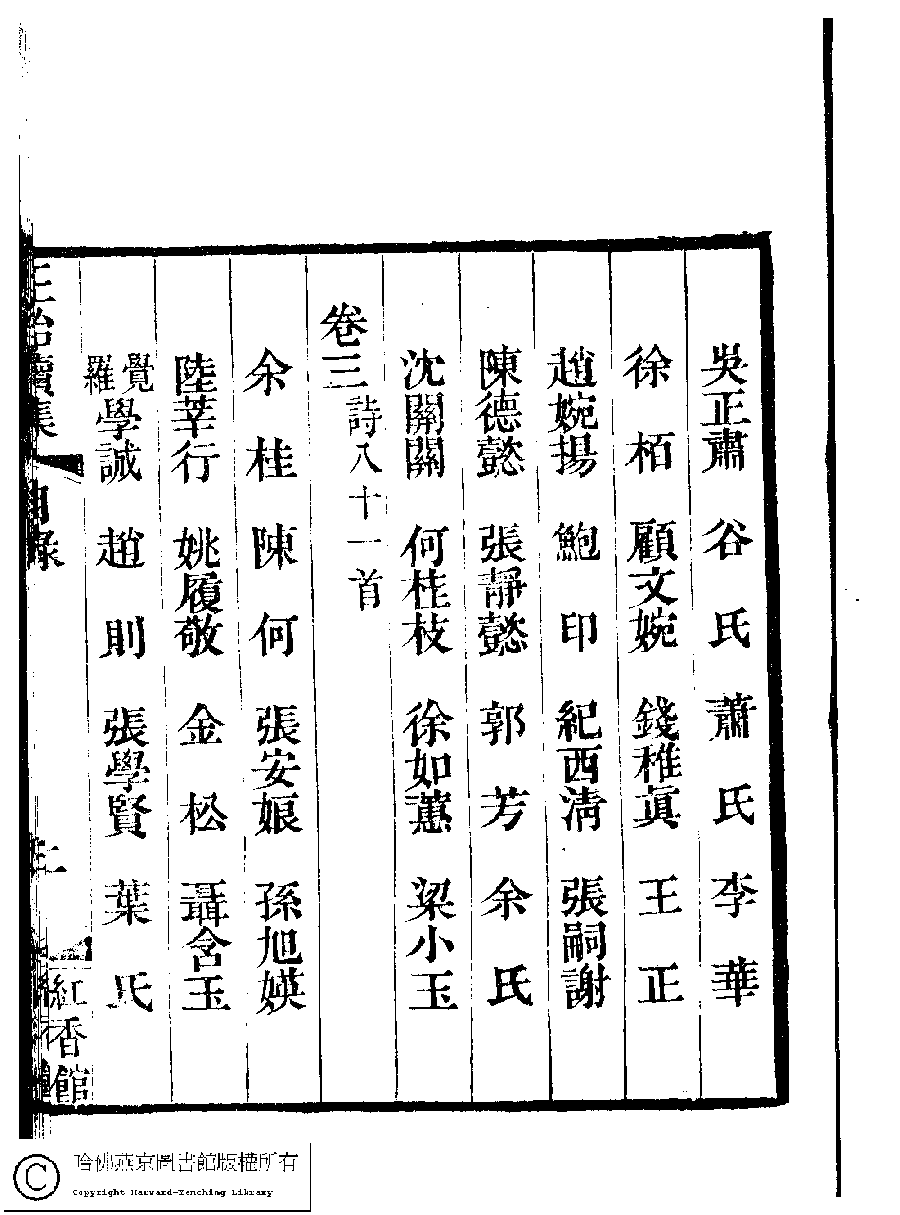 吳正肅 谷氏 蕭氏 李華
徐栢 顧文婉 錢稚真 王正
趙婉揚 鮑印 紀西淸 張嗣謝
陳德懿 張靜懿 郭芳 余氏
沈關關 何桂枝 徐如蕙 梁小玉
卷三 詩八十一首
余桂 陳何 張安娘 孫旭媖
陸莘行 姚履敬 金松 聶含玉
覺羅學誠 趙則 張學賢 葉氏
正始續集 目錄
紅香館
哈佛燕京圖書館版權所有
Copyright Harvard-Yenching Library